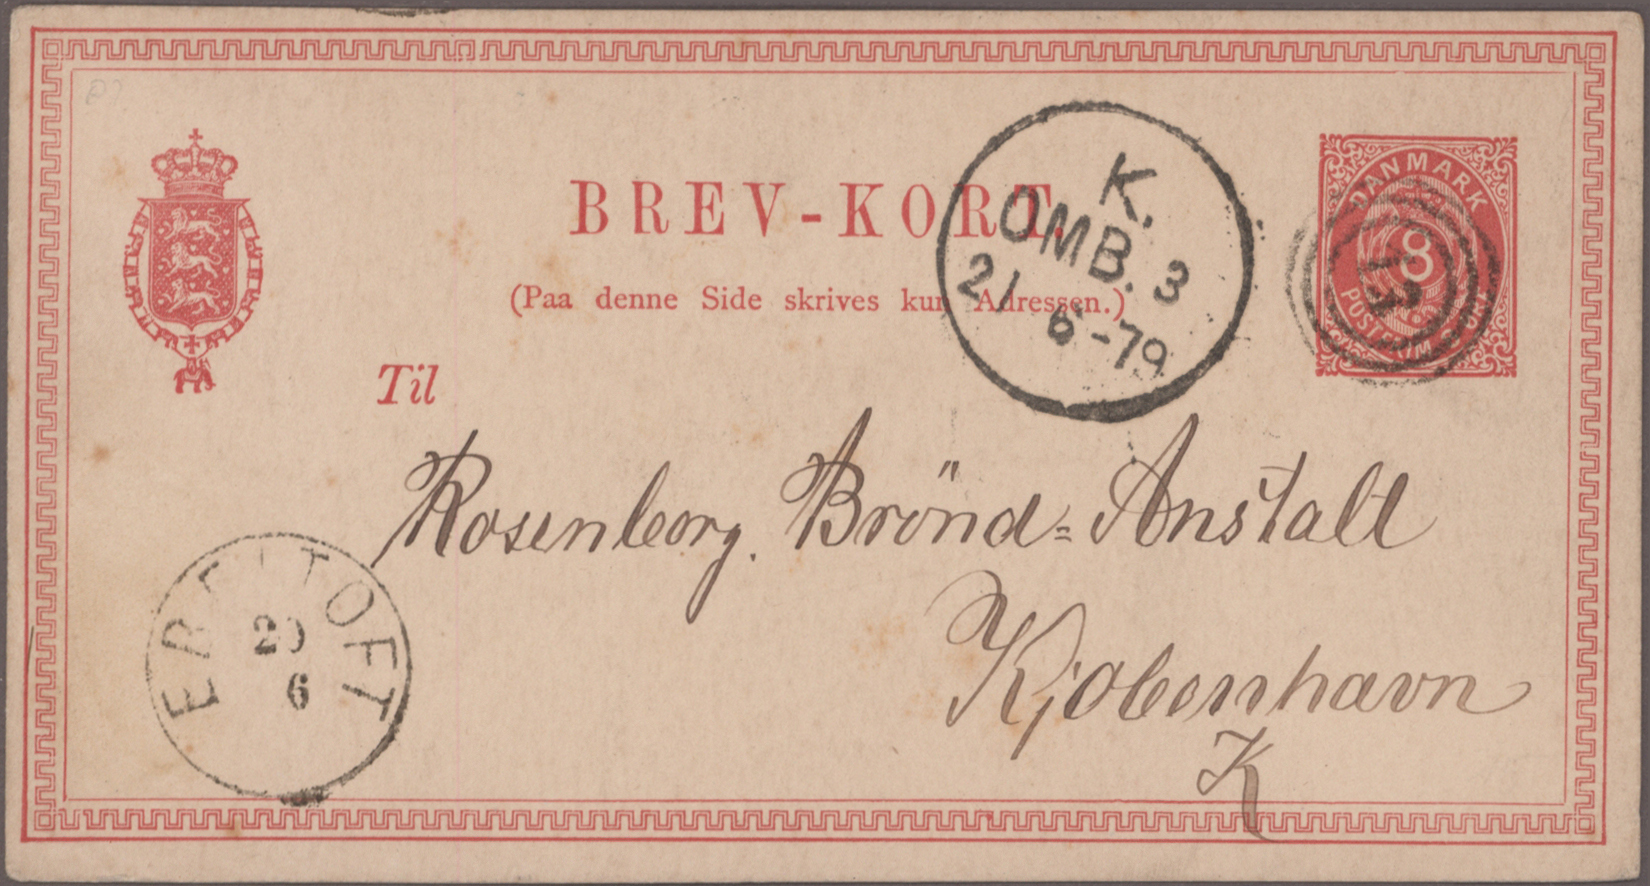 BREV-KORT.
(Paa denne Side skrives kun Adressen.)
K.
OMB. 3
21 6 -79
DANMARK
8
POSTFRIM
13
Til
Rosenborg. Brönd=Anstalt
Kjobenhavn
K
TOFT
20
6